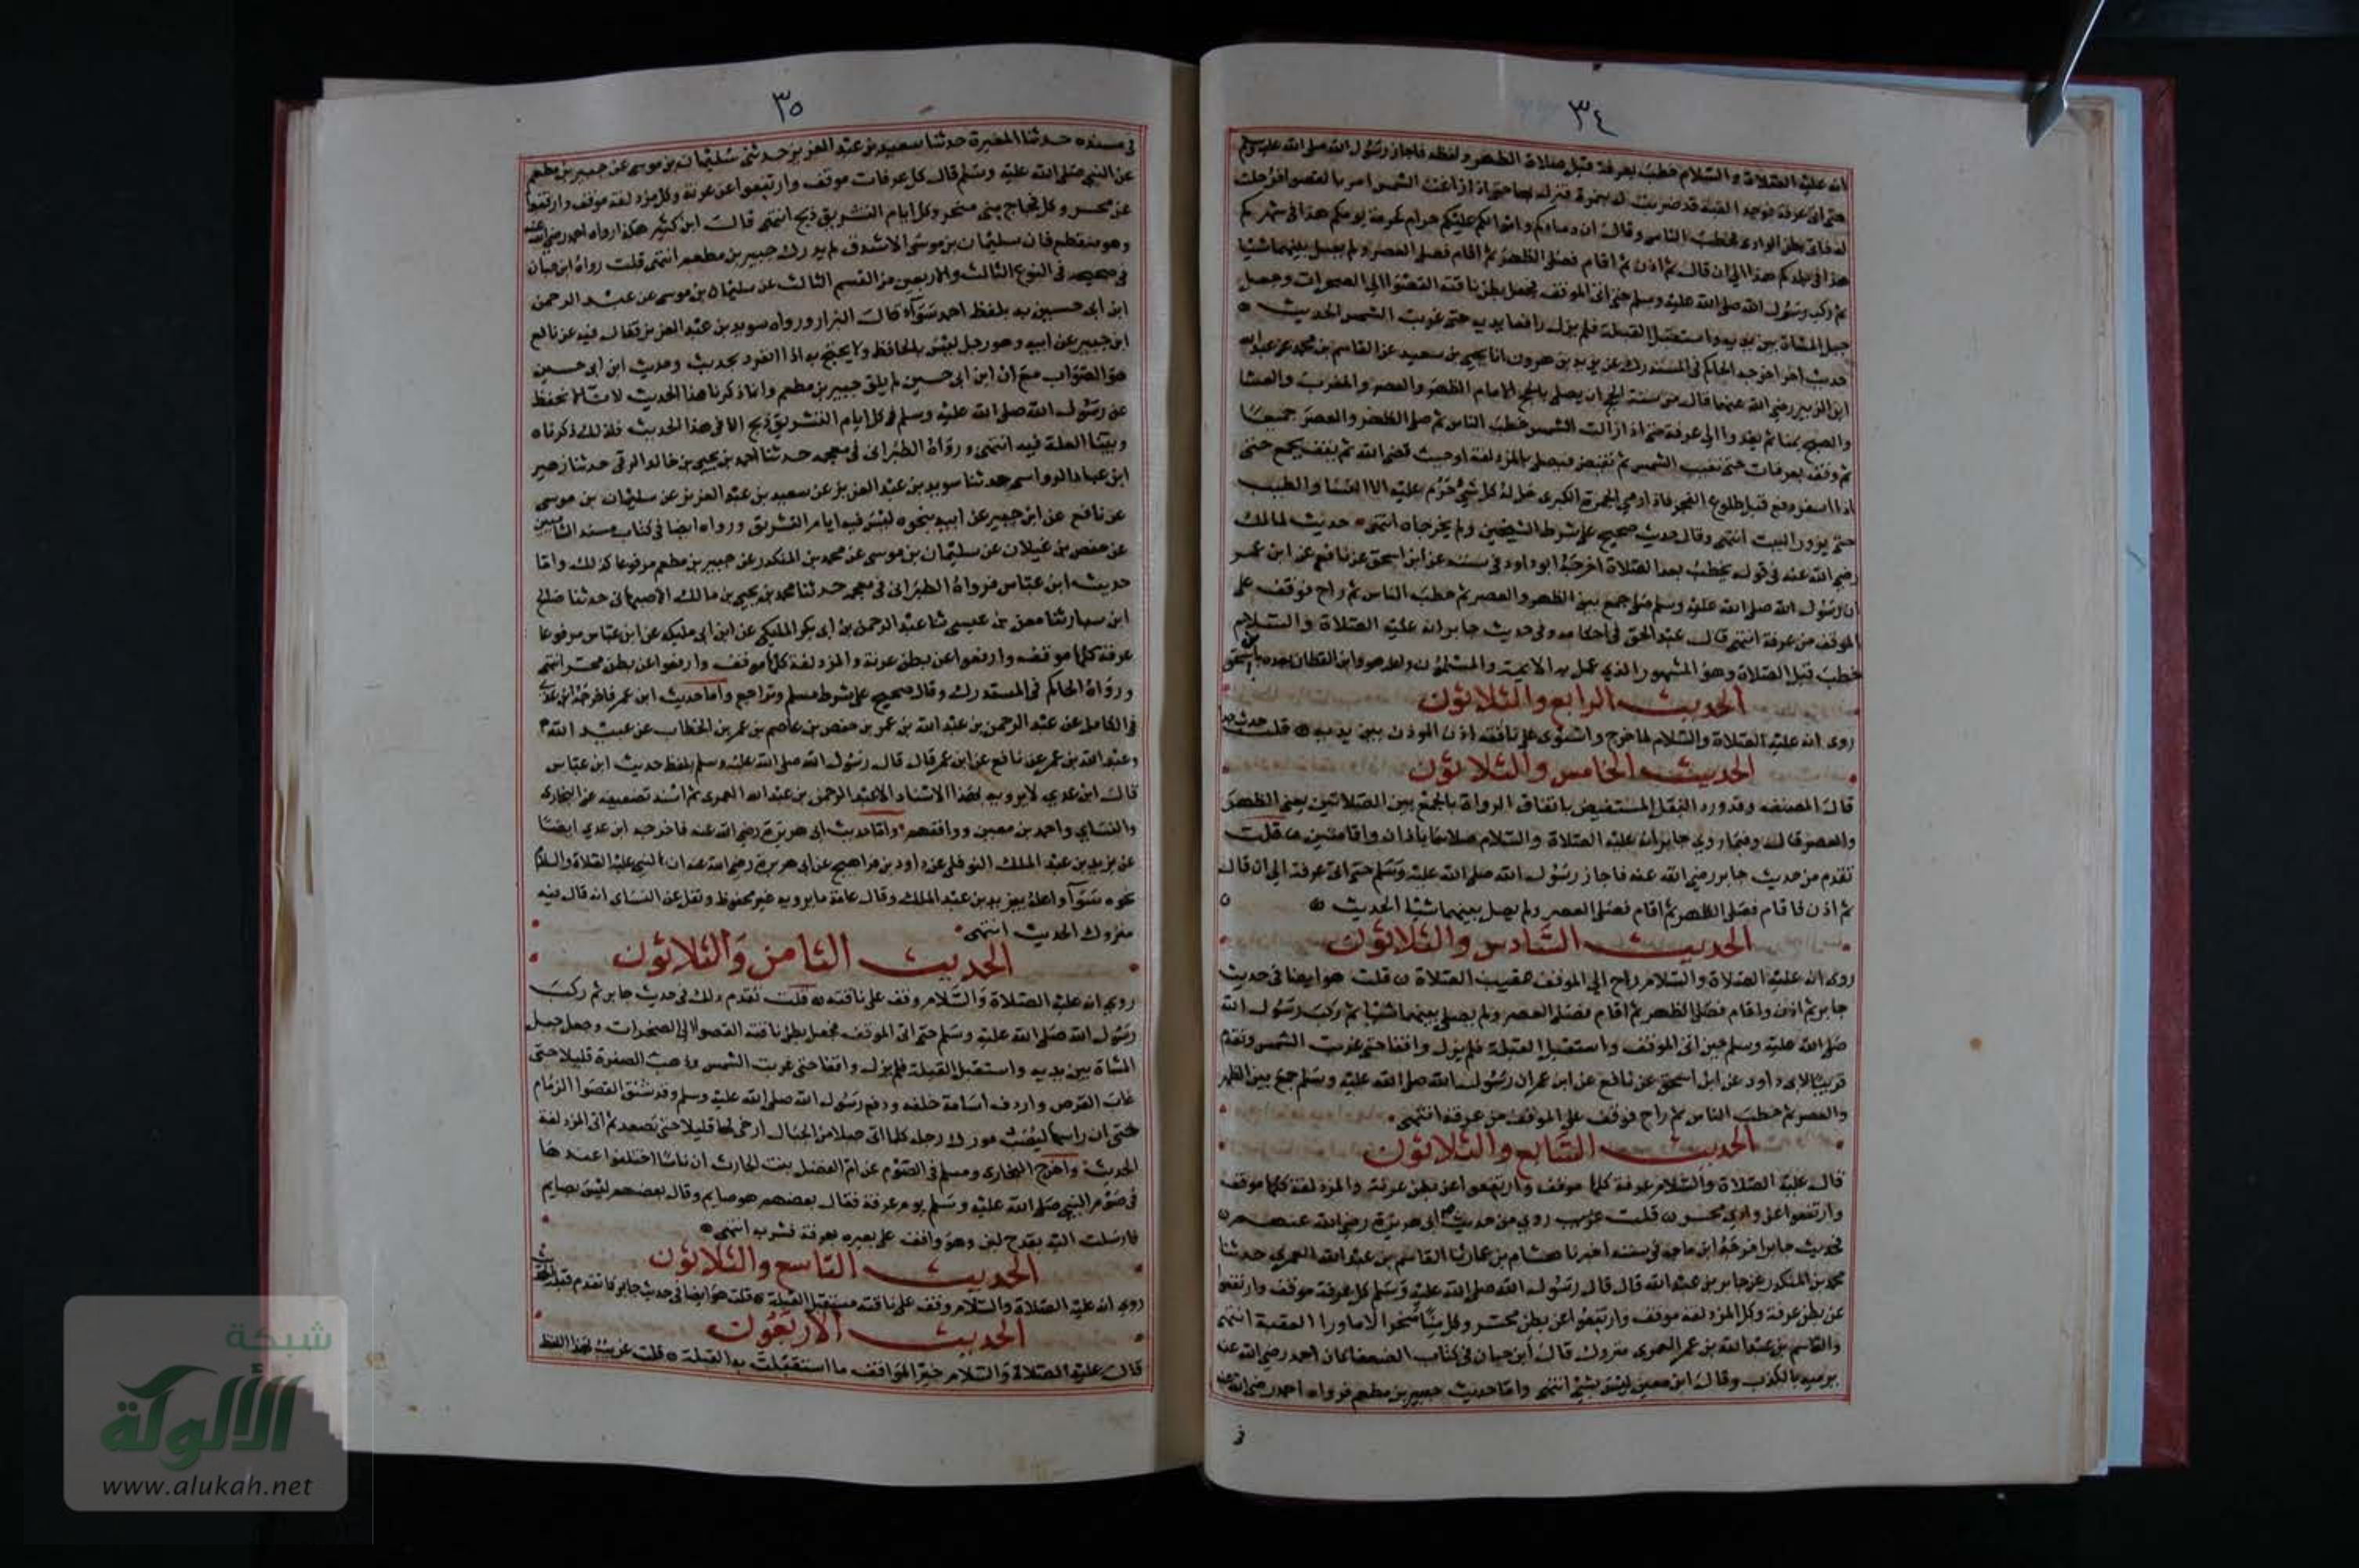 ٣٤
انه عليه الصلاة والسلام خطب بعرفة قبل صلاة الظهر ولفظه فاجاز رسول الله صلى الله عليه وسلم
حتى اتى عرفة فوجد القبة قد ضربت له بنمرة فنزل بها حتى اذا زاغت الشمس امر بالقصوا فرحلت
له فاتى بطن الوادى فخطب الناس وقال ان دماءكم واموالكم عليكم حرام كحرمة يومكم هذا في شهركم
هذا في بلدكم هذا الى ان قال ثم اذن ثم اقام فصلى الظهر ثم اقام فصلى العصر ولم يصل بينهما شيا
ثم ركب رسول الله صلى الله عليه وسلم حتى اتى الموقف فجعل بطن ناقته القصوا الى الصخرات وجعل
حبل المشاة بين يديه واستقبل القبلة فلم يزل رافعا يديه حتى غربت الشمس الحديث
حديث اخر اخرجه الحاكم في المستدرك عن يزيد بن هرون انا يحيى بن سعيد عن القاسم بن محمد عن عبد الله
ابن الزبير رضي الله عنهما قال من سنة الحج ان يصلى بالحج الامام الظهر والعصر والمغرب والعشا
والصبح بمنا ثم يغدوا الى عرفة حتى اذا زالت الشمس خطب الناس ثم صلى الظهر والعصر جميعا
ثم وقف بعرفات حتى تغيب الشمس ثم تفيض فيصلي بالمزدلفة اوحيث قضى الله ثم يقف بجمع حتى
اذا اسفر دفع قبل طلوع الفجر فاذا رمي الجمرة الكبرى حل له كل شي حرم عليه الا النسا والطيب
حتى يزور البيت انتهى وقال حديث صحيح على شرط الشيخين ولم يخرجاه انتهى حديث لمالك
رضي الله عنه في قوله يخطب بعد الصلاة اخرجه ابو داود في سننه عن ابن اسحق عن نافع عن ابن عمر
ان رسول الله صلى الله عليه وسلم صلى جمع بين الظهر والعصر ثم خطب الناس ثم راح فوقف على
الموقف من عرفة انتهى قال عبد الحق في احكامه وفي حديث جابر انه عليه الصلاة والسلام
خطب قبل الصلاة وهو المشهور الذي عمل به الايمة والمسلمون واعله هو وابن القطان بعده بابن اسحق
الحديث الرابع والثلاثون
روى انه عليه الصلاة والسلام لما خرج واستوى على ناقته اذن الموذن بين يديه قلت
الحديث الخامس والثلاثون
قال المصنف وقد ورد النقل المستفيض باتفاق الرواة بالجمع بين الصلاتين يعني الظهر
والعصر قال وفيما روي جابر انه عليه الصلاة والسلام صلاهما باذان واقامتين قلت
تقدم من حديث جابر رضي الله عنه فاجاز رسول الله صلى الله عليه وسلم حتى اتى عرفة الى ان قال
ثم اذن فاقام فصلى الظهر ثم اقام فصلى العصر ولم يصل بينهما شيا الحديث
الحديث السادس والثلاثون
روى انه عليه الصلاة والسلام راح الى الموقف عقيب الصلاة قلت هو ايضا في حديث
جابر ثم اذن واقام فصلى الظهر ثم اقام فصلى العصر ولم يصل بينهما شيا ثم ركب رسول الله
صلى الله عليه وسلم حين اتى الموقف واستقبل القبلة فلم يزل واقفا حتى غربت الشمس وتقدم
قريبا لابي داود عن ابن اسحق عن نافع عن ابن عمر ان رسول الله صلى الله عليه وسلم جمع بين الظهر
والعصر ثم خطب الناس ثم راح فوقف على الموقف من عرفة انتهى
الحديث السابع والثلاثون
قال عليه الصلاة والسلام عرفة كلها موقف وارتفعوا عن بطن عرنة والمزدلفة كلها موقف
وارتفعوا عن وادي محسر قلت غريب روي من حديث ابي هريرة رضي الله عنهم
فحديث جابر اخرجه ابن ماجة في سننه اخبرنا هشام بن عمار ثنا القاسم بن عبد الله العمري حدثنا
محمد بن المنكدر عن جابر بن عبد الله قال قال رسول الله صلى الله عليه وسلم كل عرفة موقف وارتفعوا
عن بطن عرفة وكل المزدلفة موقف وارتفعوا عن بطن محسر وكل منا منحر الا ما ورا العقبة انتهى
والقاسم بن عبد الله بن عمر العمري متروك قال ابن حبان في كتاب الضعفا كان احمد رضي الله عنه
يرميه بالكذب وقال ابن معين ليس بشي انتهى واما حديث جبير بن مطعم فرواه احمد رضي الله عنه
٣٥
في مسنده حدثنا المغيرة حدثنا سعيد بن عبد العزيز حدثني سليمان بن موسى عن جبير بن مطعم
عن النبي صلى الله عليه وسلم قال كل عرفات موقف وارتفعوا عن عرنة وكل مزدلفة موقف وارتفعوا
عن محسر وكل فجاج منى منحر وكل ايام التشريق ذبح انتهى قال ابن كثير هكذا رواه احمد رضي الله عنه
وهو منقطع فان سليمان بن موسى الاشدق لم يدرك جبير بن مطعم انتهى قلت رواه ابن حبان
في صحيحه في النوع الثالث والاربعين من القسم الثالث عن سليمان بن موسى عن عبد الرحمن
ابن ابي حسين به بلفظ احمد سوآء قال البزار ورواه سويد بن عبد العزيز فقال فيه عن نافع
ابن جبير عن ابيه وهو رجل ليس بالحافظ ولا يحتج به اذا انفرد بحديث وحديث ابن ابي حسين
هو الصواب مع ان ابن ابي حسين لم يلق جبير بن مطعم وانما ذكرنا هذا الحديث لانا لا نحفظ
عن رسول الله صلى الله عليه وسلم في كل ايام التشريق ذبح الا في هذا الحديث فلذلك ذكرناه
وبينا العلة فيه انتهى ورواه الطبراني في معجمه حدثنا احمد بن يحيى بن خالد الرقي حدثنا زهير
ابن عباد الرواسي حدثنا سويد بن عبد العزيز عن سعيد بن عبد العزيز عن سليمان بن موسى
عن نافع عن ابن جبير عن ابيه بنحوه ليس فيه ايام التشريق ورواه ايضا في كتاب مسند الشاميين
عن حفص بن غيلان عن سليمان بن موسى عن محمد بن المنكدر عن جبير بن مطعم مرفوعا كذلك واما
حديث ابن عباس فرواه الطبراني في معجمه حدثنا محمد بن يحيى بن مالك الاصبهاني حدثنا صالح
ابن سيار ثنا معن بن عيسى ثنا عبد الرحمن بن ابي بكر المليكي عن ابن ابي مليكة عن ابن عباس مرفوعا
عرفة كلها موقف وارفعوا عن بطن عرنة والمزدلفة كلها موقف وارفعوا عن بطن محسر انتهى
ورواه الحاكم في المستدرك وقال صحيح على شرط مسلم وتراجع واما حديث ابن عمر فاخرجه ابن عدي
في الكامل عن عبد الرحمن بن عبد الله بن عمر بن حفص بن عاصم بن عمر بن الخطاب عن عبيد الله
وعبد الله بن عمر عن نافع عن ابن عمر قال قال رسول الله صلى الله عليه وسلم بلفظ حديث ابن عباس
قال ابن عدي لا يرويه بهذا الاسناد الا عبد الرحمن بن عبد الله العمرى ثم اسند تضعيفه عن البخارى
والنساي واحمد بن معين ووافقهم واما حديث ابي هريرة رضي الله عنه فاخرجه ابن عدي ايضا
عن يزيد بن عبد الملك النوفلي عن داود بن فراهيج عن ابي هريرة رضي الله عنه ان النبي عليه الصلاة والسلام
نحوه سوآ واعله بيزيد بن عبد الملك وقال عامة ما يرويه غير محفوظ ونقل عن النساي انه قال فيه
متروك الحديث انتهى
الحديث الثامن والثلاثون
روي انه عليه الصلاة والسلام وقف على ناقته قلت تقدم ذلك في حديث جابر ثم ركب
رسول الله صلى الله عليه وسلم حتى اتى الموقف فجعل بطن ناقته القصوا الى الصخرات وجعل حبل
المشاة بين يديه واستقبل القبلة فلم يزل واقفا حتى غربت الشمس وذهبت الصفرة قليلا حتى
غاب القرص واردف اسامة خلفه ودفع رسول الله صلى الله عليه وسلم وقد شنق القصوا الزمام
حتى ان راسها ليصيب مورك رحله كلما اتى حبلا من الجبال ارخى لها قليلا حتى تصعد ثم اتى المزدلفة
الحديث واخرج البخارى ومسلم في الصوم عن ام الفضل بنت الحارث ان ناسا اختلفوا عندها
في صوم النبي صلى الله عليه وسلم يوم عرفة فقال بعضهم هو صايم وقال بعضهم ليس بصايم
فارسلت اليه بقدح لبن وهو واقف على بعيره بعرفة فشرب انتهى
الحديث التاسع والثلاثون
روى انه عليه الصلاة والسلام وقف على ناقته مستقبل القبلة قلت هو ايضا في حديث جابر كما تقدم قبله
الحديث الاربعون
قال عليه الصلاة والسلام خير المواقف ما استقبلت به القبلة قلت غريب بهذا اللفظ
شبكة
الألوكة
www.alukah.net